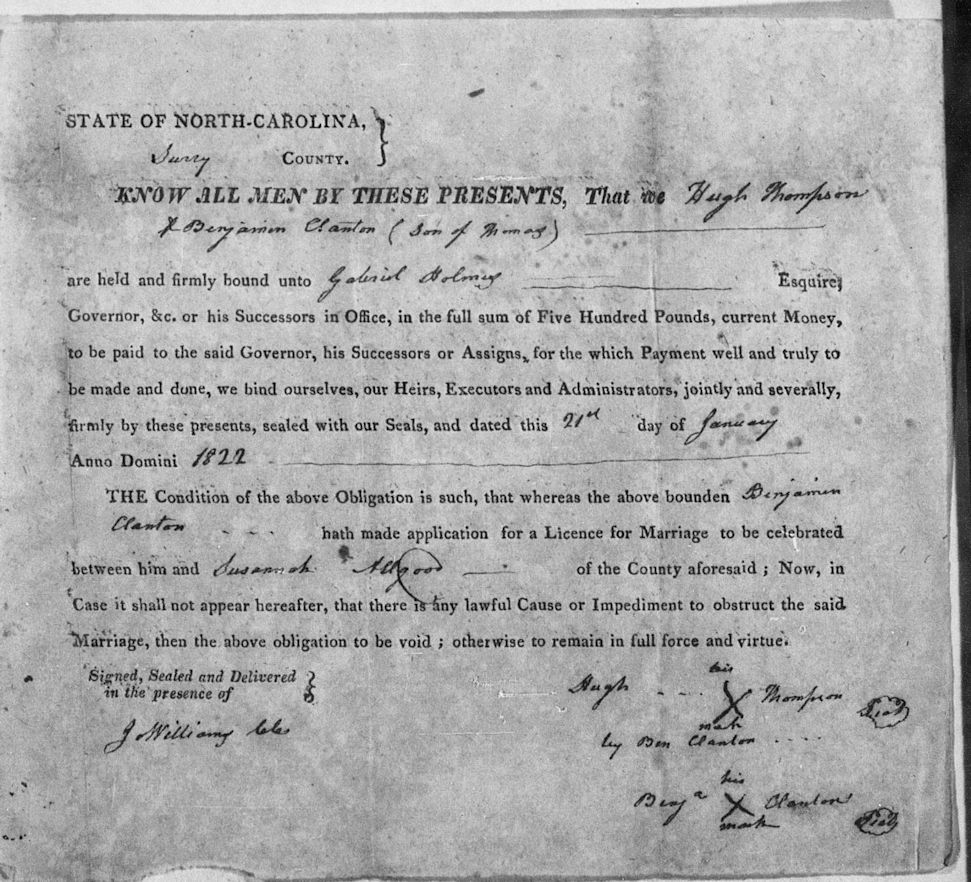 STATE OF NORTH-CAROLINA,
Surry COUNTY.
KNOW ALL MEN BY THESE PRESENTS, That we Hugh Thompson
& Benjamin Clanton (Son of Thomas)
are held and firmly bound unto Gabriel Holmes Esquire,
Governor, &c. or his Successors in Office, in the full sum of Five Hundred Pounds, current Money,
to be paid to the said Governor, his Successors or Assigns, for the which Payment well and truly to
be made and done, we bind ourselves, our Heirs, Executors and Administrators, jointly and severally,
firmly by these presents, sealed with our Seals, and dated this 21st day of January
Anno Domini 1822
THE Condition of the above Obligation is such, that whereas the above bounden Benjamin
Clanton hath made application for a Licence for Marriage to be celebrated
between him and Susannah Allgood of the County aforesaid; Now, in
Case it shall not appear hereafter, that there is any lawful Cause or Impediment to obstruct the said
Marriage, then the above obligation to be void; otherwise to remain in full force and virtue.
Signed, Sealed and Delivered
in the presence of
J Williams
his
Hugh X Thompson Seal
mark
by Ben Clanton
his
Benja X Clanton Seal
mark